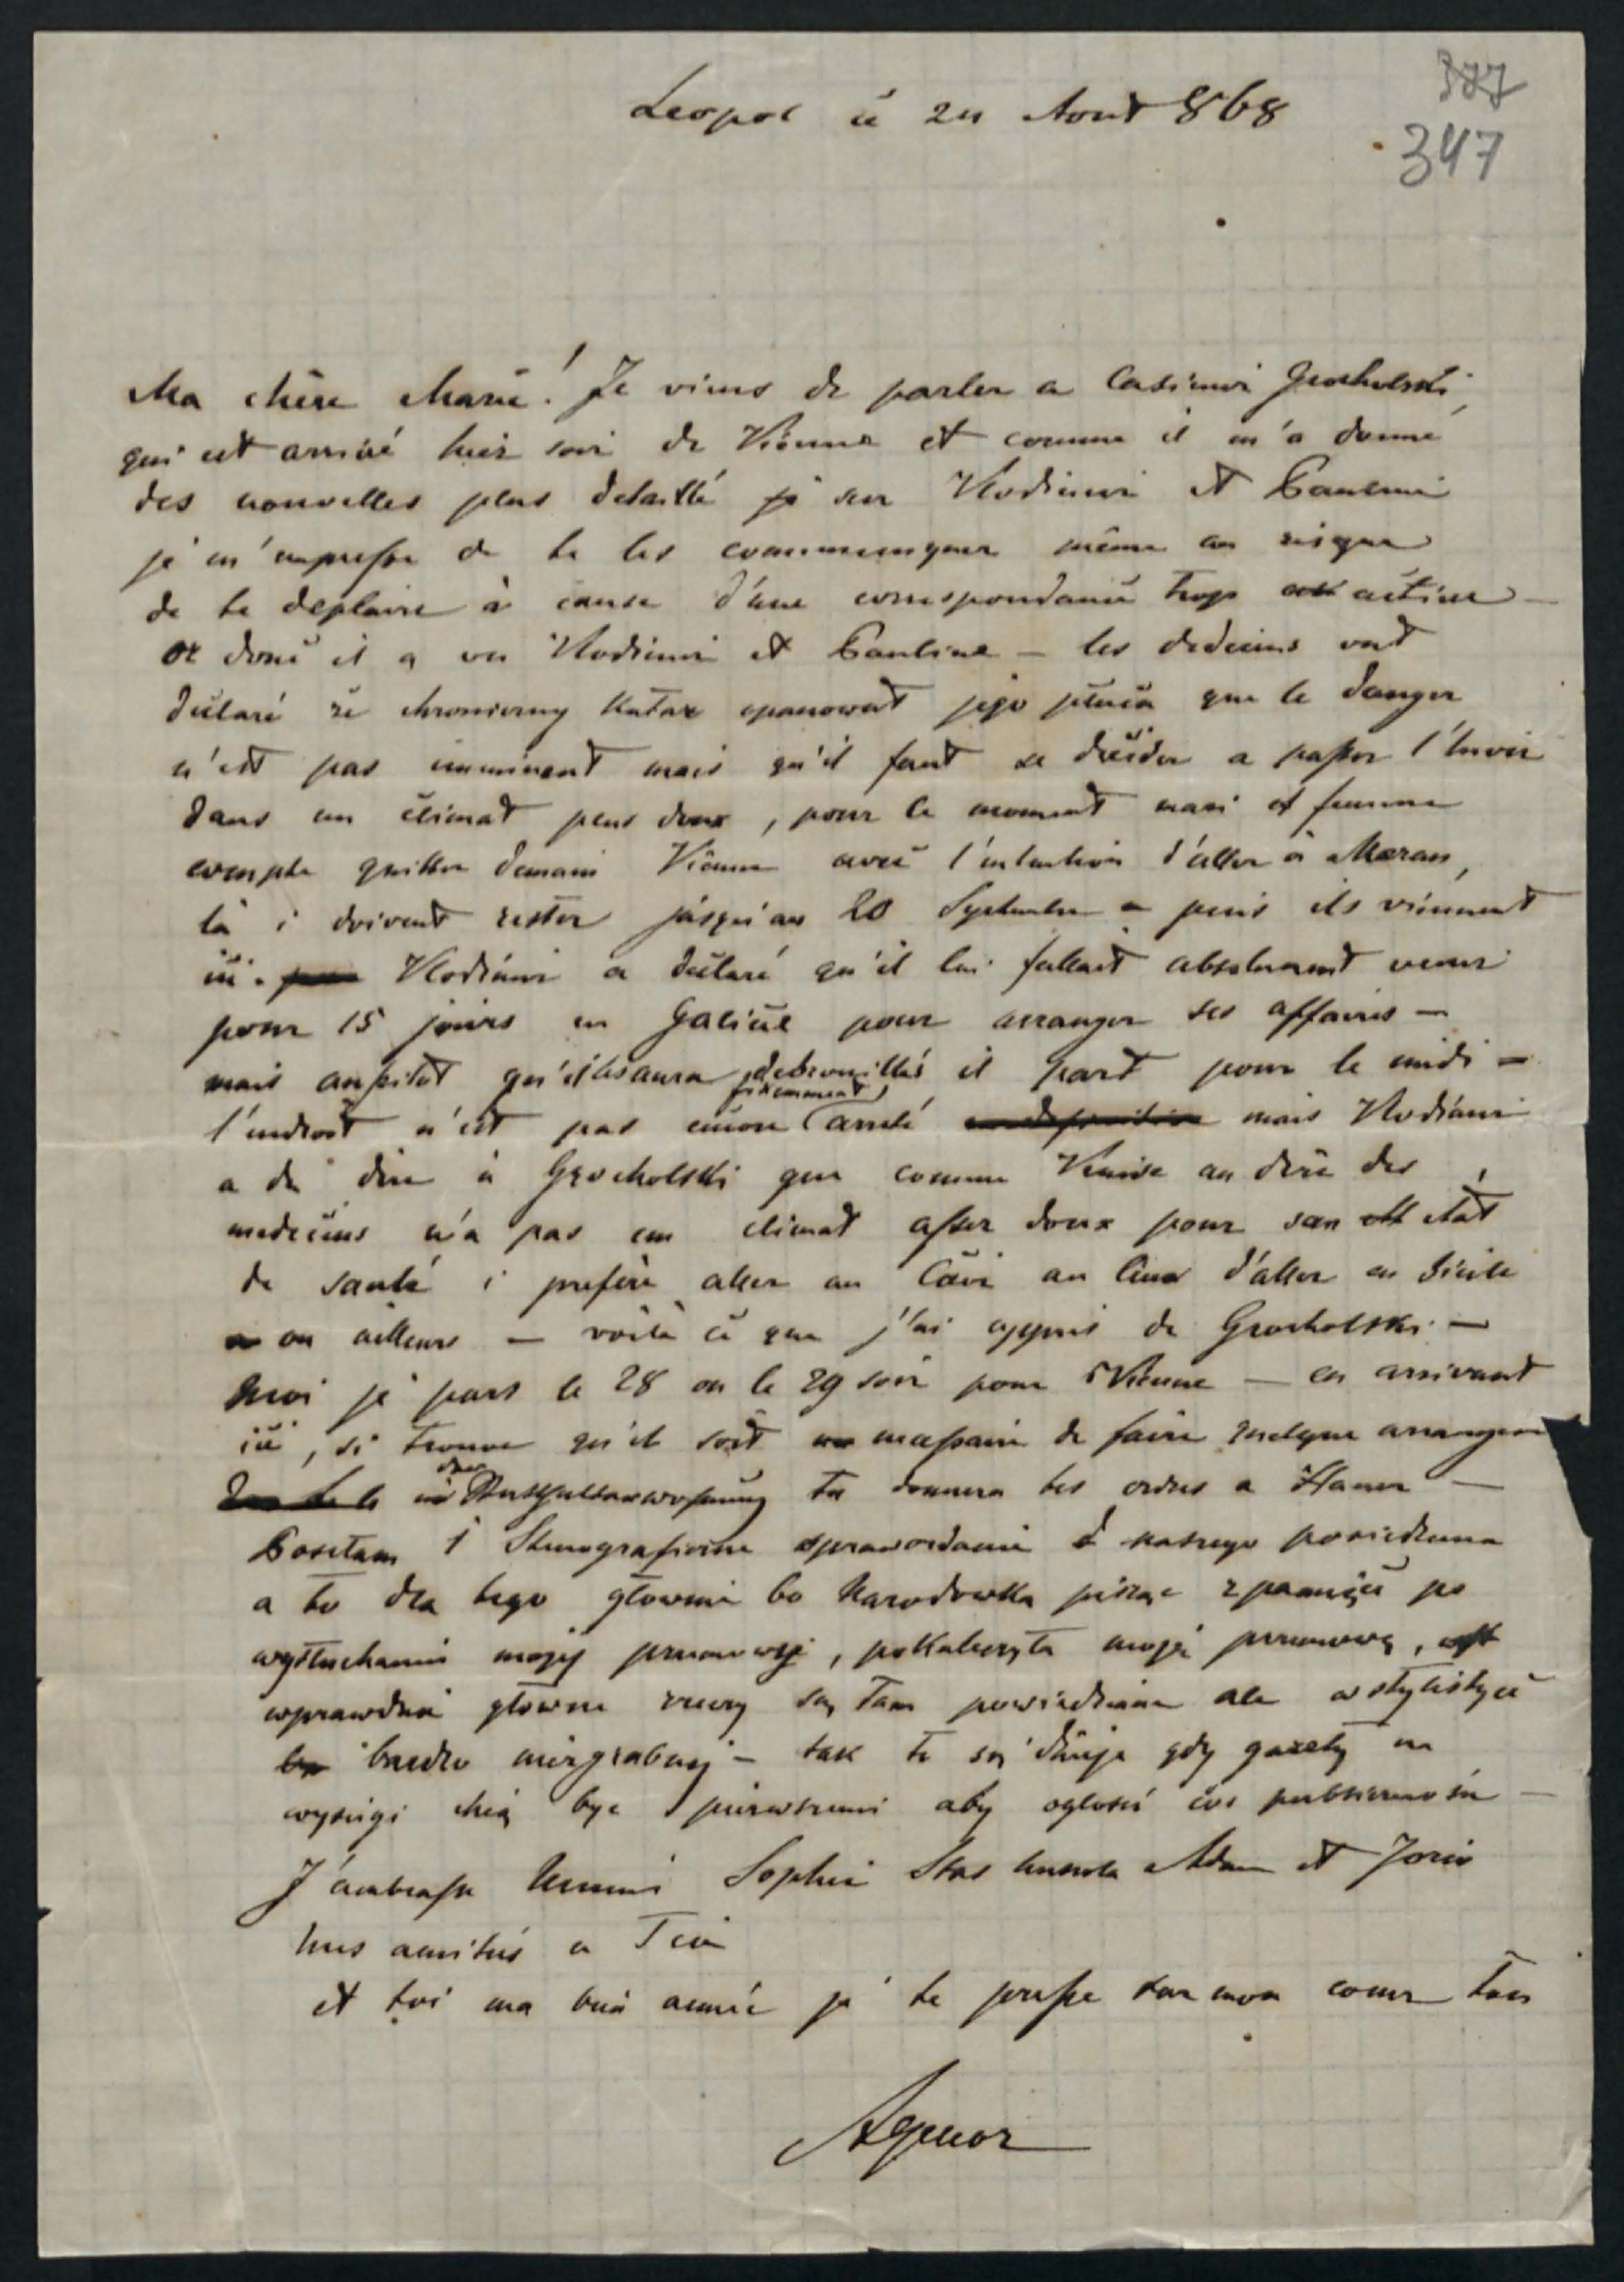 377
347
Leopol ce 24 Aout 868
Ma chère Marie! Je viens de parler a Casimir Grocholski,
qui est arrivé hier soir de Vienne et comme il m'a donné
des nouvelles plus detaillé sur Vlodimir et
je m'empresse de te les communiquer même au risque
de te deplaire à cause d'une correspondance trop active —
or donc il a vu Vlodimir et Pauline — les medecins ont
déclaré że chroniczny katar opanował jego płuca que le danger
n'est pas imminent mais qu'il faut se decider a passer l'hiver
dans un climat plus doux, pour le moment mari et femme
compte quitter demain Vienne avec l'intention d'aller à Meran,
là i doivent rester jusqu'au 20 Septembre — puis ils viennent
ici. Vlodimir a déclaré qu'il lui fallait absolument venir
pour 15 jours en Galicie pour arranger ses affaires —
mais aussitot qu'il les aura debrouillés il part pour le midi —
l'endroit n'est pas encore arreté mais Vlodimir
a du dire à Grocholski que comme Venise au dire des
medecins n'a pas un climat asser doux pour son etat
de santé i prefère aller au Cair au lieu d'aller en Sicile
ou ailleurs — voila ce que j'ai appris de Grocholski —
Moi je pars le 28 ou le 29 soir pour Vienne — en arrivant
ici, si trouve qu'il soit de faire quelque
tu donnera tes ordres a
Posełam i Stenograficzne sprawozdanie z naszego posiedzenia
a to dla tego głownie bo Narodowka pisząc z pamięci po
wysłuchaniu mojej przemowy, pokaleczyła moję przemowę,
wprawdzie głowne rzeczy są tam powiedziane ale w stylistyce
bardzo niezgrabnej — tak to się dzieje gdy gazety na
wyscigi chcą być pierwszemi aby ogłosić coś publiczności —
J'embrasse Mimi Sophie Stas Adam et Jozio
mes amitiés a
et toi ma bien aimée je te presse sur mon coeur ton
Agenor